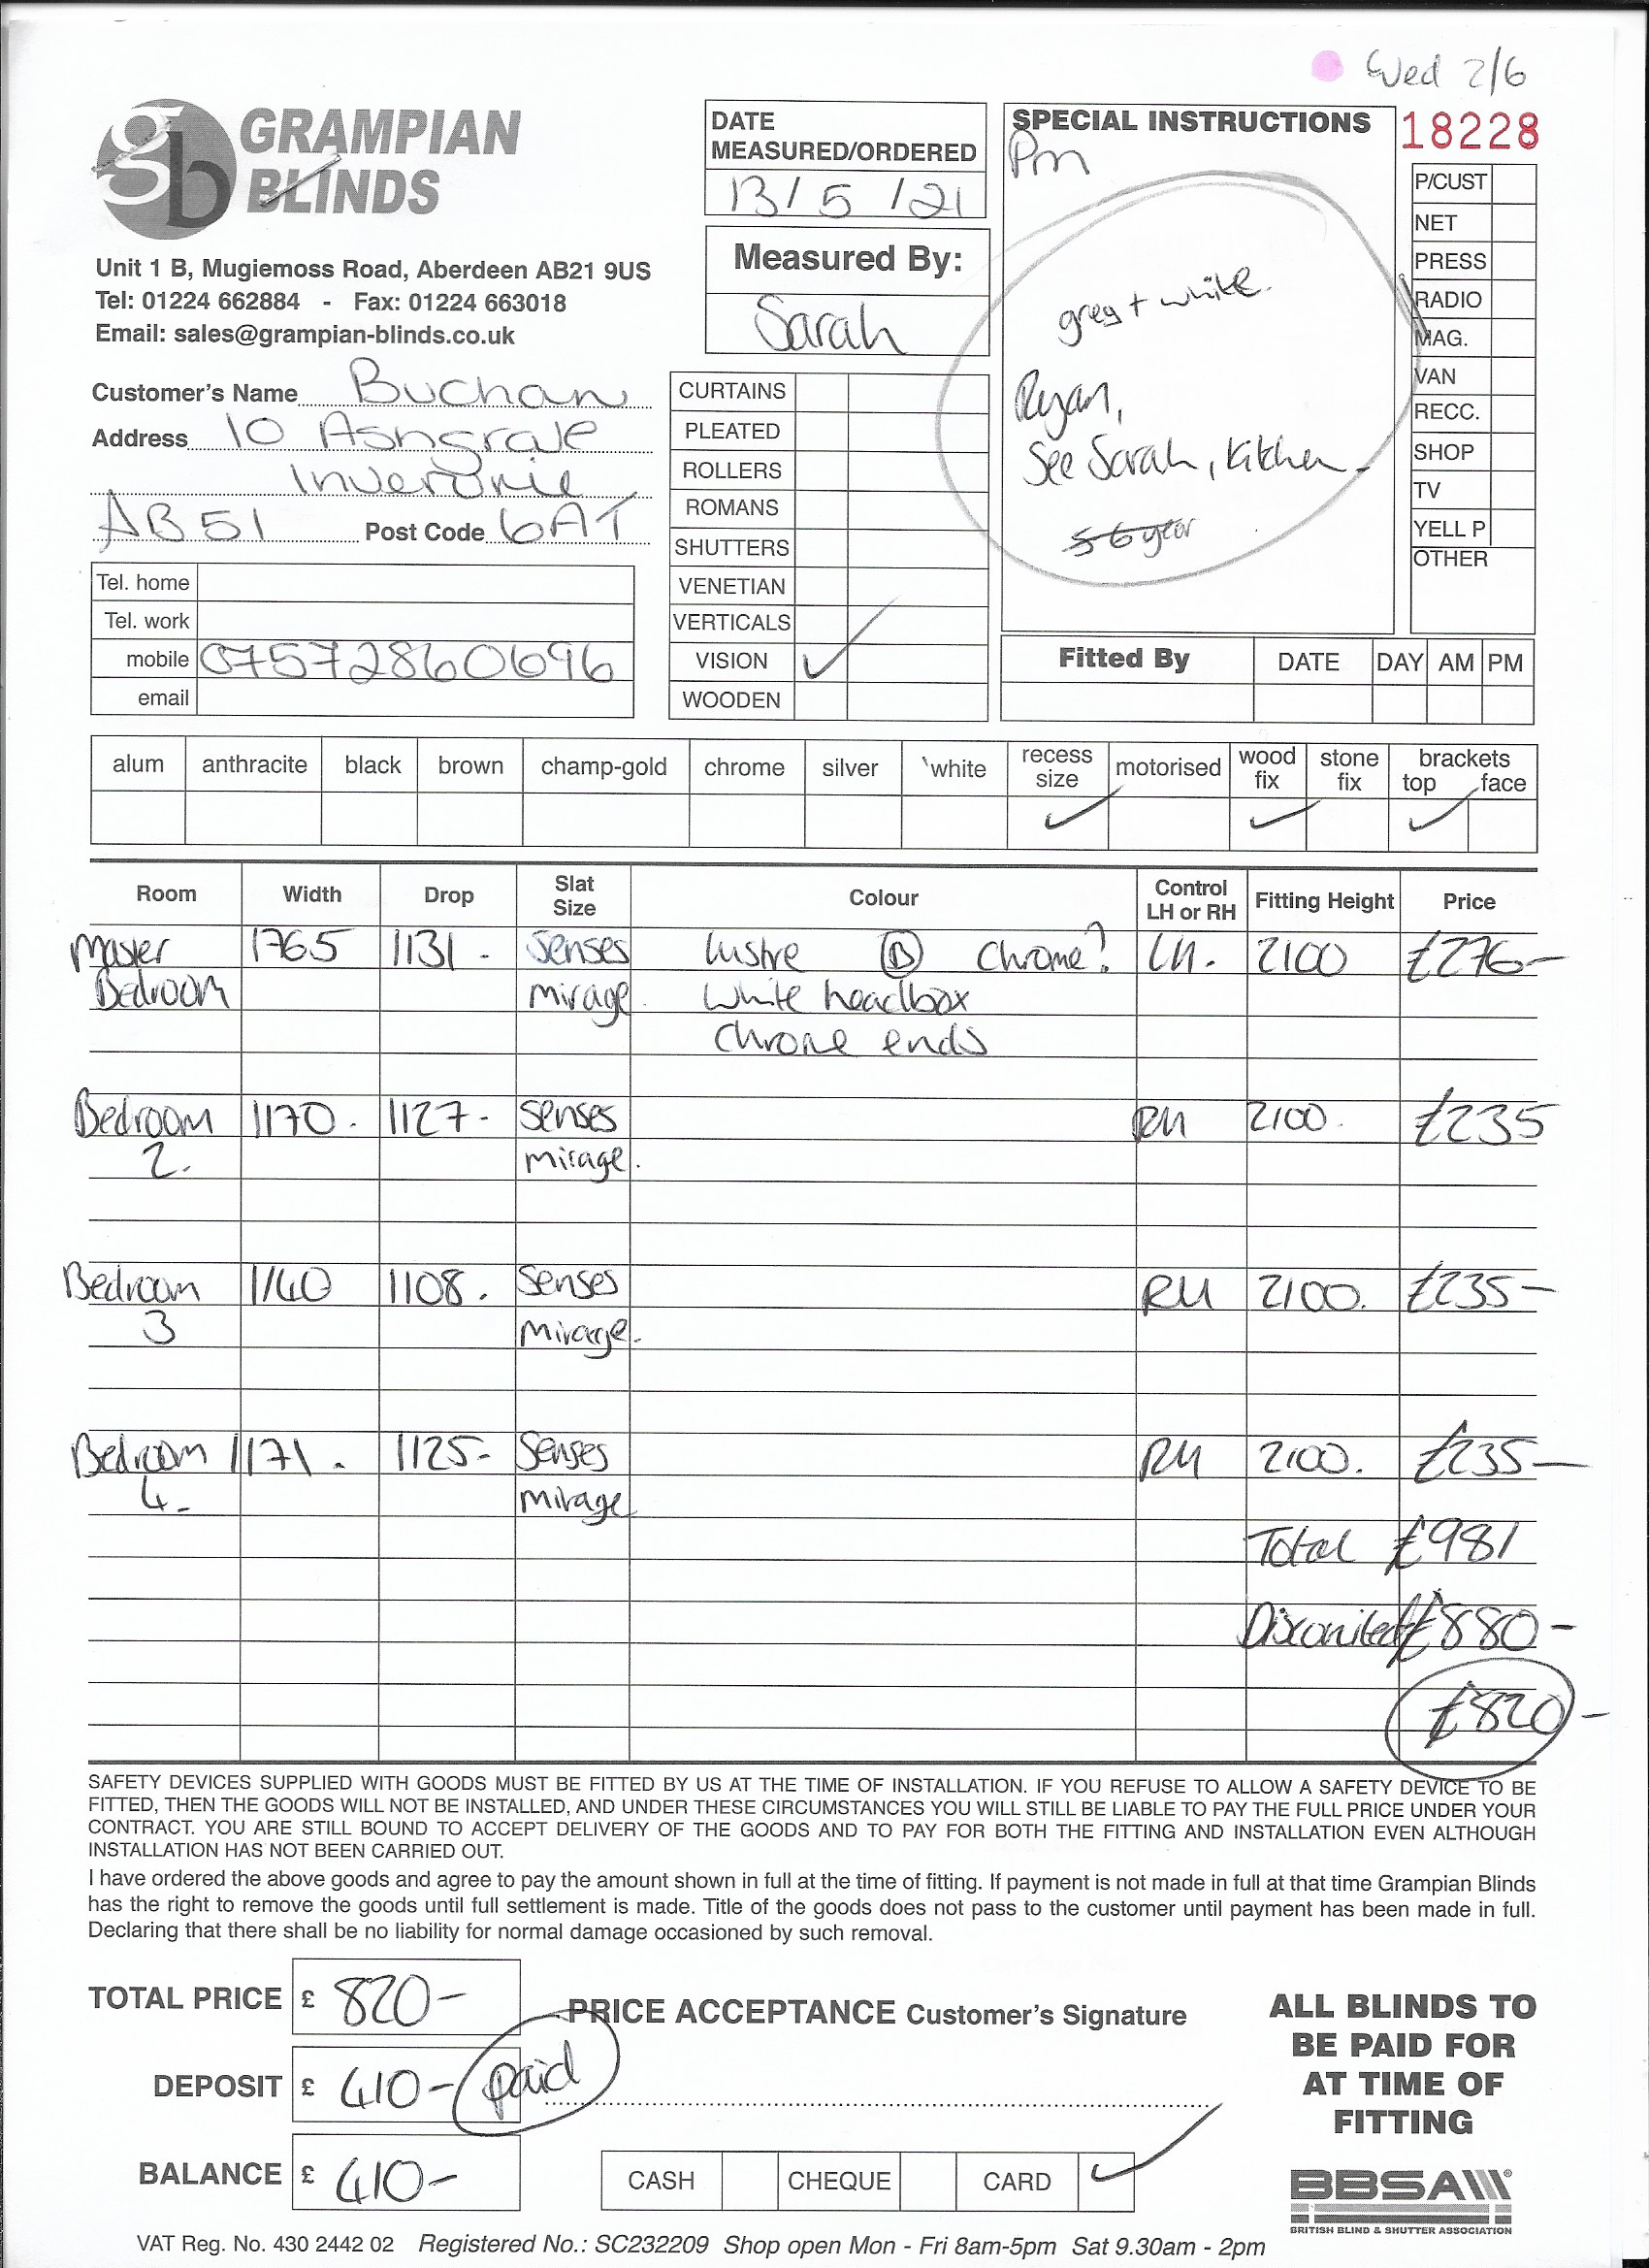 Wed 2/6
gb GRAMPIAN
BLINDS
Unit 1 B, Mugiemoss Road, Aberdeen AB21 9US
Tel: 01224 662884 - Fax: 01224 663018
Email: sales@grampian-blinds.co.uk
DATE
MEASURED/ORDERED
13/5/21
Measured By:
Sarah
SPECIAL INSTRUCTIONS
Pm
grey + white.
Ryan,
See Sarah, Kitchen -
5 6 year
18228
P/CUST
NET
PRESS
RADIO
MAG.
VAN
RECC.
SHOP
TV
YELL P
OTHER
Customer's Name Buchan
Address 10 Ashgrove
Inverurie
AB51 Post Code 6AT
Tel. home
Tel. work
mobile 07572860696
email
CURTAINS
PLEATED
ROLLERS
ROMANS
SHUTTERS
VENETIAN
VERTICALS
VISION ✓
WOODEN
Fitted By DATE DAY AM PM
alum anthracite black brown champ-gold chrome silver white recess size motorised wood fix stone fix brackets top face
✓ ✓ ✓
Room Width Drop Slat Size Colour Control LH or RH Fitting Height Price
Master 1765 1131 - Senses lustre B Chrome? LH. 2100 £276-
Bedroom mirage. White headbox
Chrome ends
Bedroom 1170. 1127- Senses RH 2100. £235
2. mirage.
Bedroom 1140 1108. Senses RH 2100. £235-
3 mirage.
Bedroom 1171. 1125- Senses RH 2100. £235-
4- mirage
Total £981
Discounted £880-
£820-
SAFETY DEVICES SUPPLIED WITH GOODS MUST BE FITTED BY US AT THE TIME OF INSTALLATION. IF YOU REFUSE TO ALLOW A SAFETY DEVICE TO BE
FITTED, THEN THE GOODS WILL NOT BE INSTALLED, AND UNDER THESE CIRCUMSTANCES YOU WILL STILL BE LIABLE TO PAY THE FULL PRICE UNDER YOUR
CONTRACT. YOU ARE STILL BOUND TO ACCEPT DELIVERY OF THE GOODS AND TO PAY FOR BOTH THE FITTING AND INSTALLATION EVEN ALTHOUGH
INSTALLATION HAS NOT BEEN CARRIED OUT.
I have ordered the above goods and agree to pay the amount shown in full at the time of fitting. If payment is not made in full at that time Grampian Blinds
has the right to remove the goods until full settlement is made. Title of the goods does not pass to the customer until payment has been made in full.
Declaring that there shall be no liability for normal damage occasioned by such removal.
TOTAL PRICE £ 820-
DEPOSIT £ 410- paid
BALANCE £ 410-
PRICE ACCEPTANCE Customer's Signature
CASH CHEQUE CARD ✓
ALL BLINDS TO
BE PAID FOR
AT TIME OF
FITTING
BBSA
BRITISH BLIND & SHUTTER ASSOCIATION
VAT Reg. No. 430 2442 02 Registered No.: SC232209 Shop open Mon - Fri 8am-5pm Sat 9.30am - 2pm